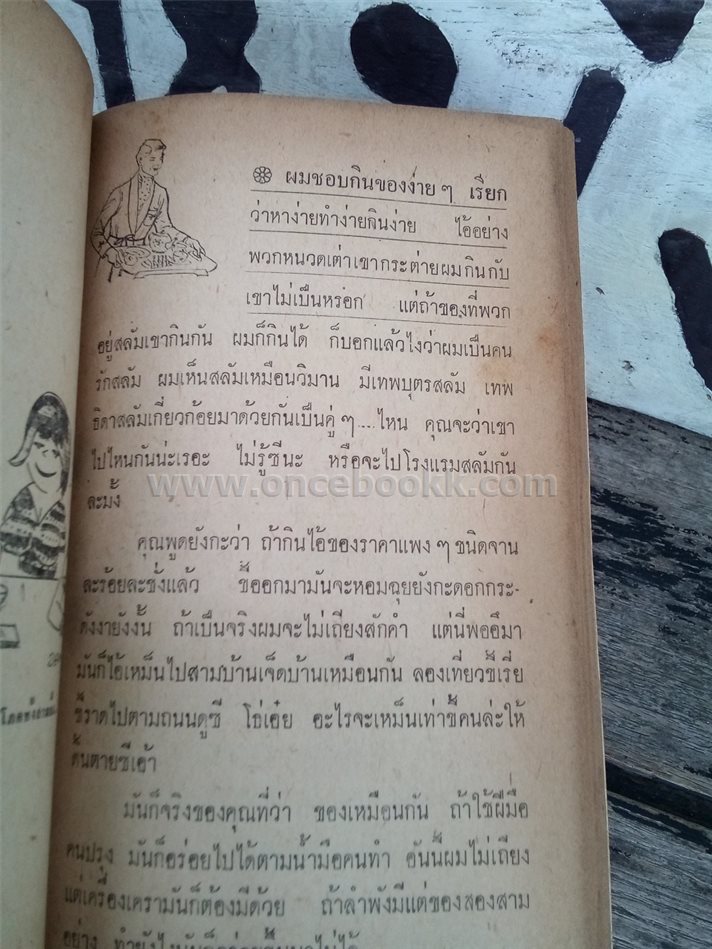 ❁ ผมชอบกินของง่าย ๆ เรียก
ว่าหาง่ายทำง่ายกินง่าย ไอ้อย่าง
พวกหนวดเต่าเขากระต่ายผมกินกับ
เขาไม่เป็นหรอก แต่ถ้าของที่พวก
อยู่สลัมเขากินกัน ผมก็กินได้ ก็บอกแล้วไงว่าผมเป็นคน
รักสลัม ผมเห็นสลัมเหมือนวิมาน มีเทพบุตรสลัม เทพ
ธิดาสลัมเกี่ยวก้อยมาด้วยกันเป็นคู่ ๆ....ไหน คุณจะว่าเขา
ไปไหนกันน่ะเรอะ ไม่รู้ซีนะ หรือจะไปโรงแรมสลัมกัน
ละมั้ง
www.oncebookk.com
คุณพูดยังกะว่า ถ้ากินไอ้ของราคาแพง ๆ ชนิดจาน
ละร้อยละชั่งแล้ว ขี้ออกมามันจะหอมฉุยยังกะดอกกระ-
ดังงายังงั้น ถ้าเป็นจริงผมจะไม่เถียงสักคำ แต่นี่พออึมา
มันก็ไอ้เหม็นไปสามบ้านเจ็ดบ้านเหมือนกัน ลองเที่ยวขี้เรี่ย
ขี้ราดไปตามถนนดูซี โธ่เอ๋ย อะไรจะเหม็นเท่าขี้คนล่ะให้
ดิ้นตายซีเอ้า
มันก็จริงของคุณที่ว่า ของเหมือนกัน ถ้าใช้ฝีมือ
คนปรุง มันก็อร่อยไปได้ตามน้ำมือคนทำ อันนี้ผมไม่เถียง
แต่เครื่องเครามันก็ต้องมีด้วย ถ้าลำพังมีแต่ของสองสาม
อย่าง ทำยังไงมันก็